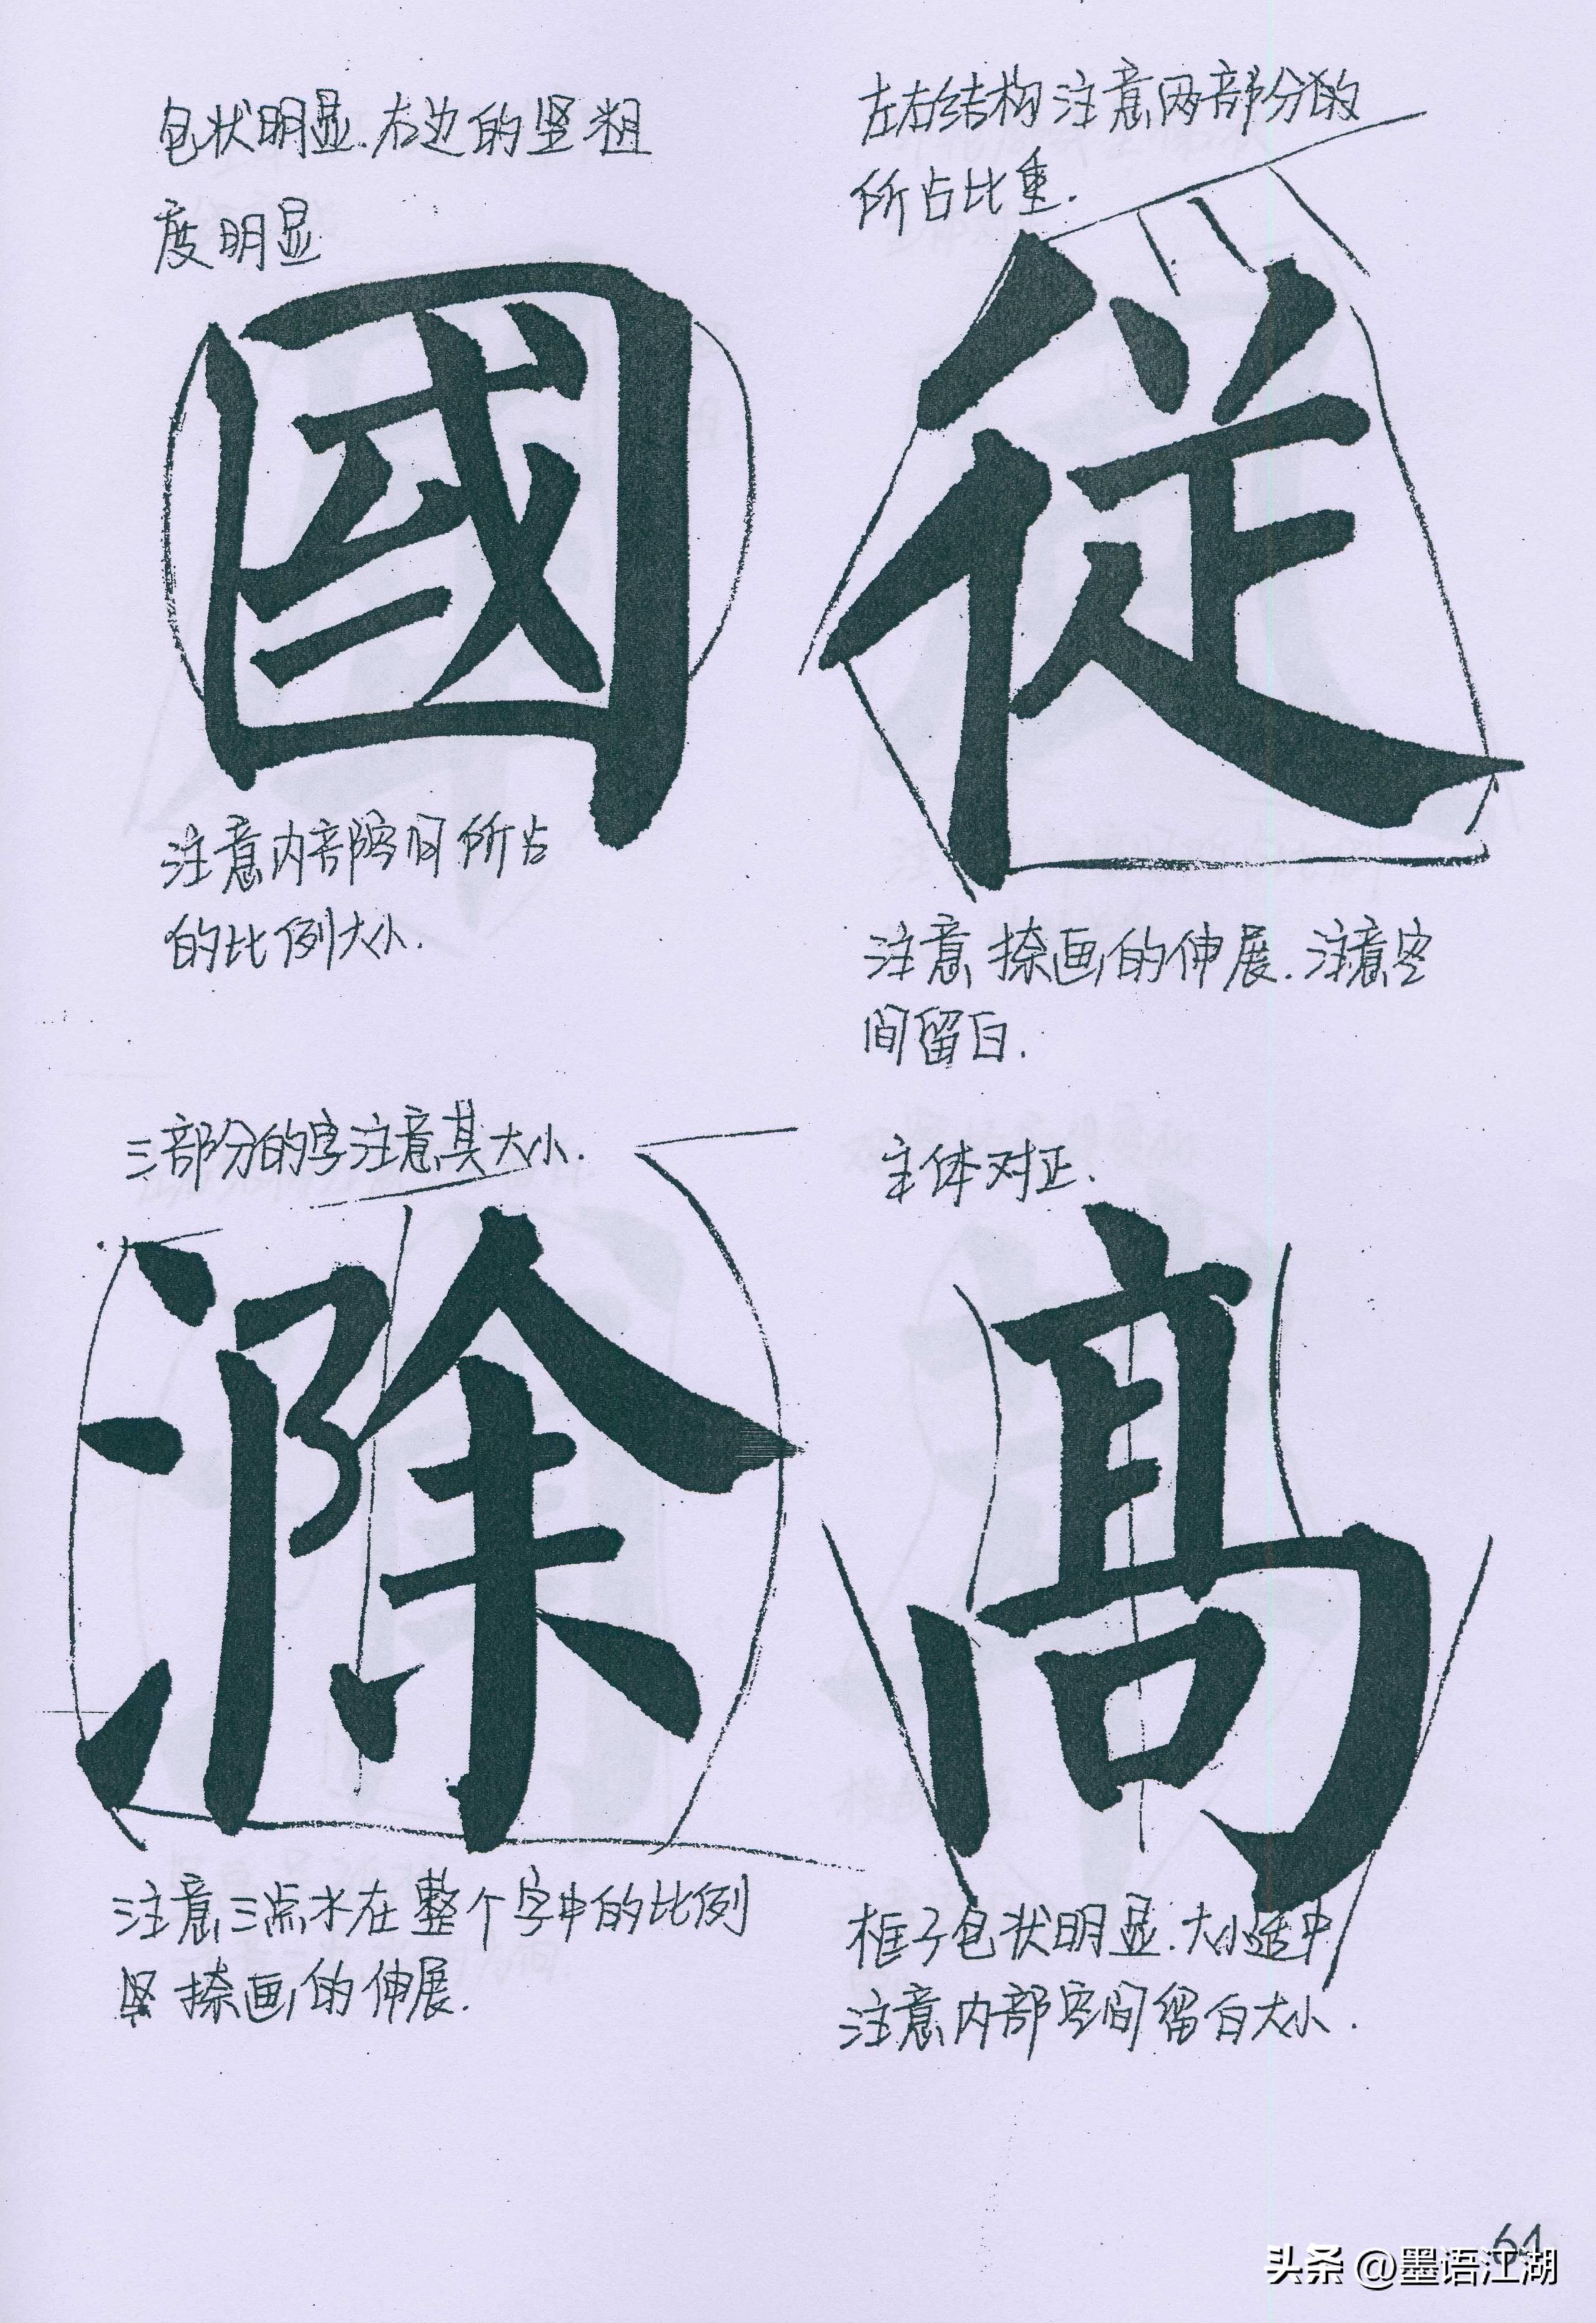 包状明显.右边的竖粗
度明显
國
注意内部空间所占
的比例大小.
左右结构注意两部分的
所占比重.
從
注意捺画的伸展.注意空
间留白.
三部分的字注意其大小.
滁
注意三点水在整个字中的比例
竖捺画的伸展.
主体对正.
高
框子包状明显.大小适中
注意内部空间留白大小.
64
头条 @墨语江湖